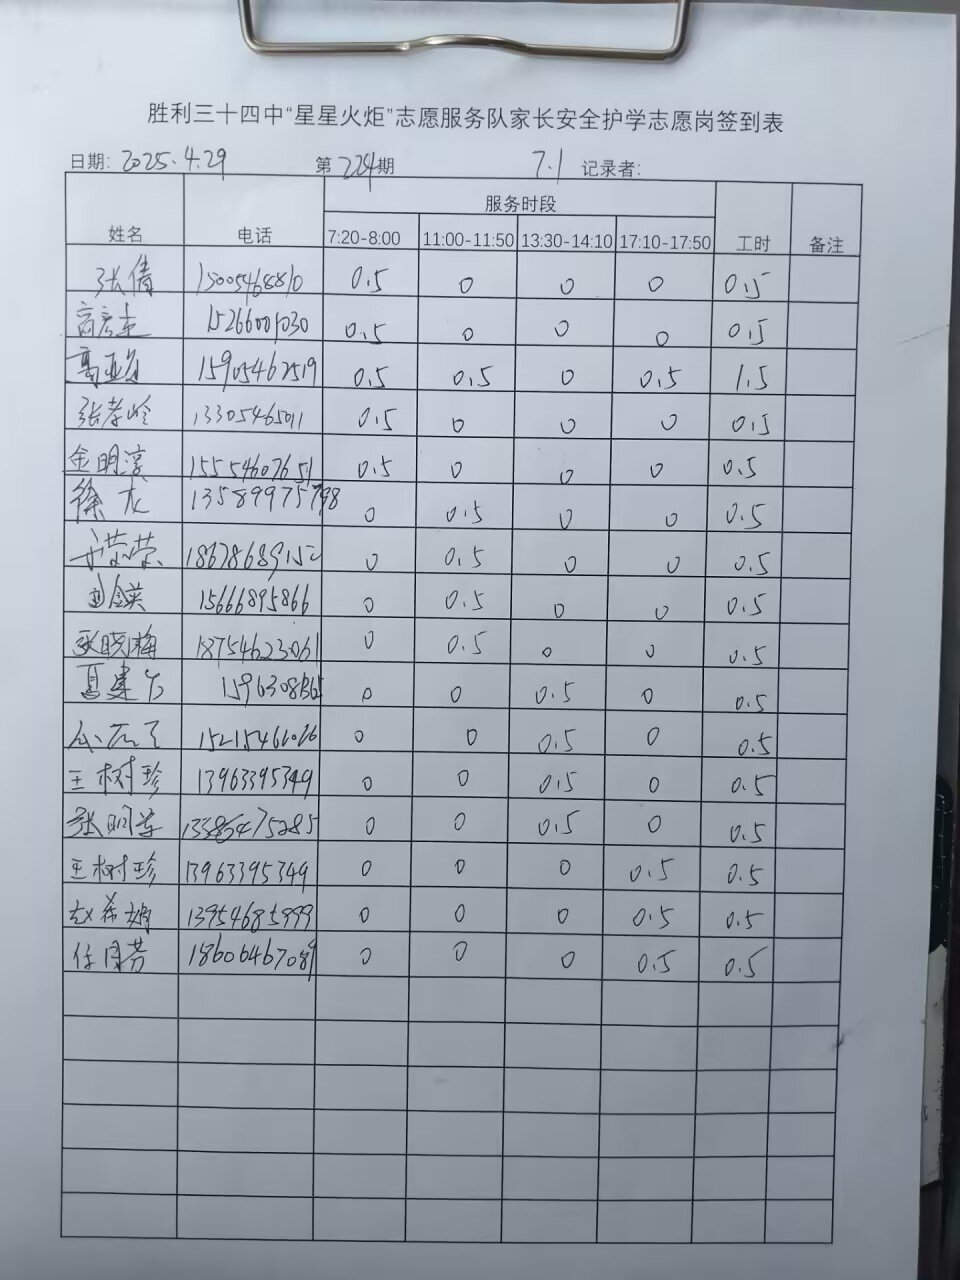 胜利三十四中“星星火炬”志愿服务队家长安全护学志愿岗签到表
日期: 2025.4.29 第224期 7.1 记录者:
服务时段
姓名 电话 7:20-8:00 11:00-11:50 13:30-14:10 17:10-17:50 工时 备注
张倩 15005468810 0.5 0 0 0 0.5
15266001030 0.5 0 0 0 0.5
15905462519 0.5 0.5 0 0.5 1.5
张孝岭 13305465011 0.5 0 0 0 0.5
金明淳 15554607651 0.5 0 0 0 0.5
徐龙 13589975798 0 0.5 0 0 0.5
18678689152 0 0.5 0 0 0.5
曲金英 15666895866 0 0.5 0 0 0.5
张晓梅 18754623061 0 0.5 0 0 0.5
0 0 0.5 0 0.5
15215466026 0 0 0.5 0 0.5
王树珍 13963395349 0 0 0.5 0 0.5
0 0 0.5 0 0.5
王树珍 13963395349 0 0 0 0.5 0.5
赵希娟 13954685999 0 0 0 0.5 0.5
任国芳 18606467089 0 0 0 0.5 0.5